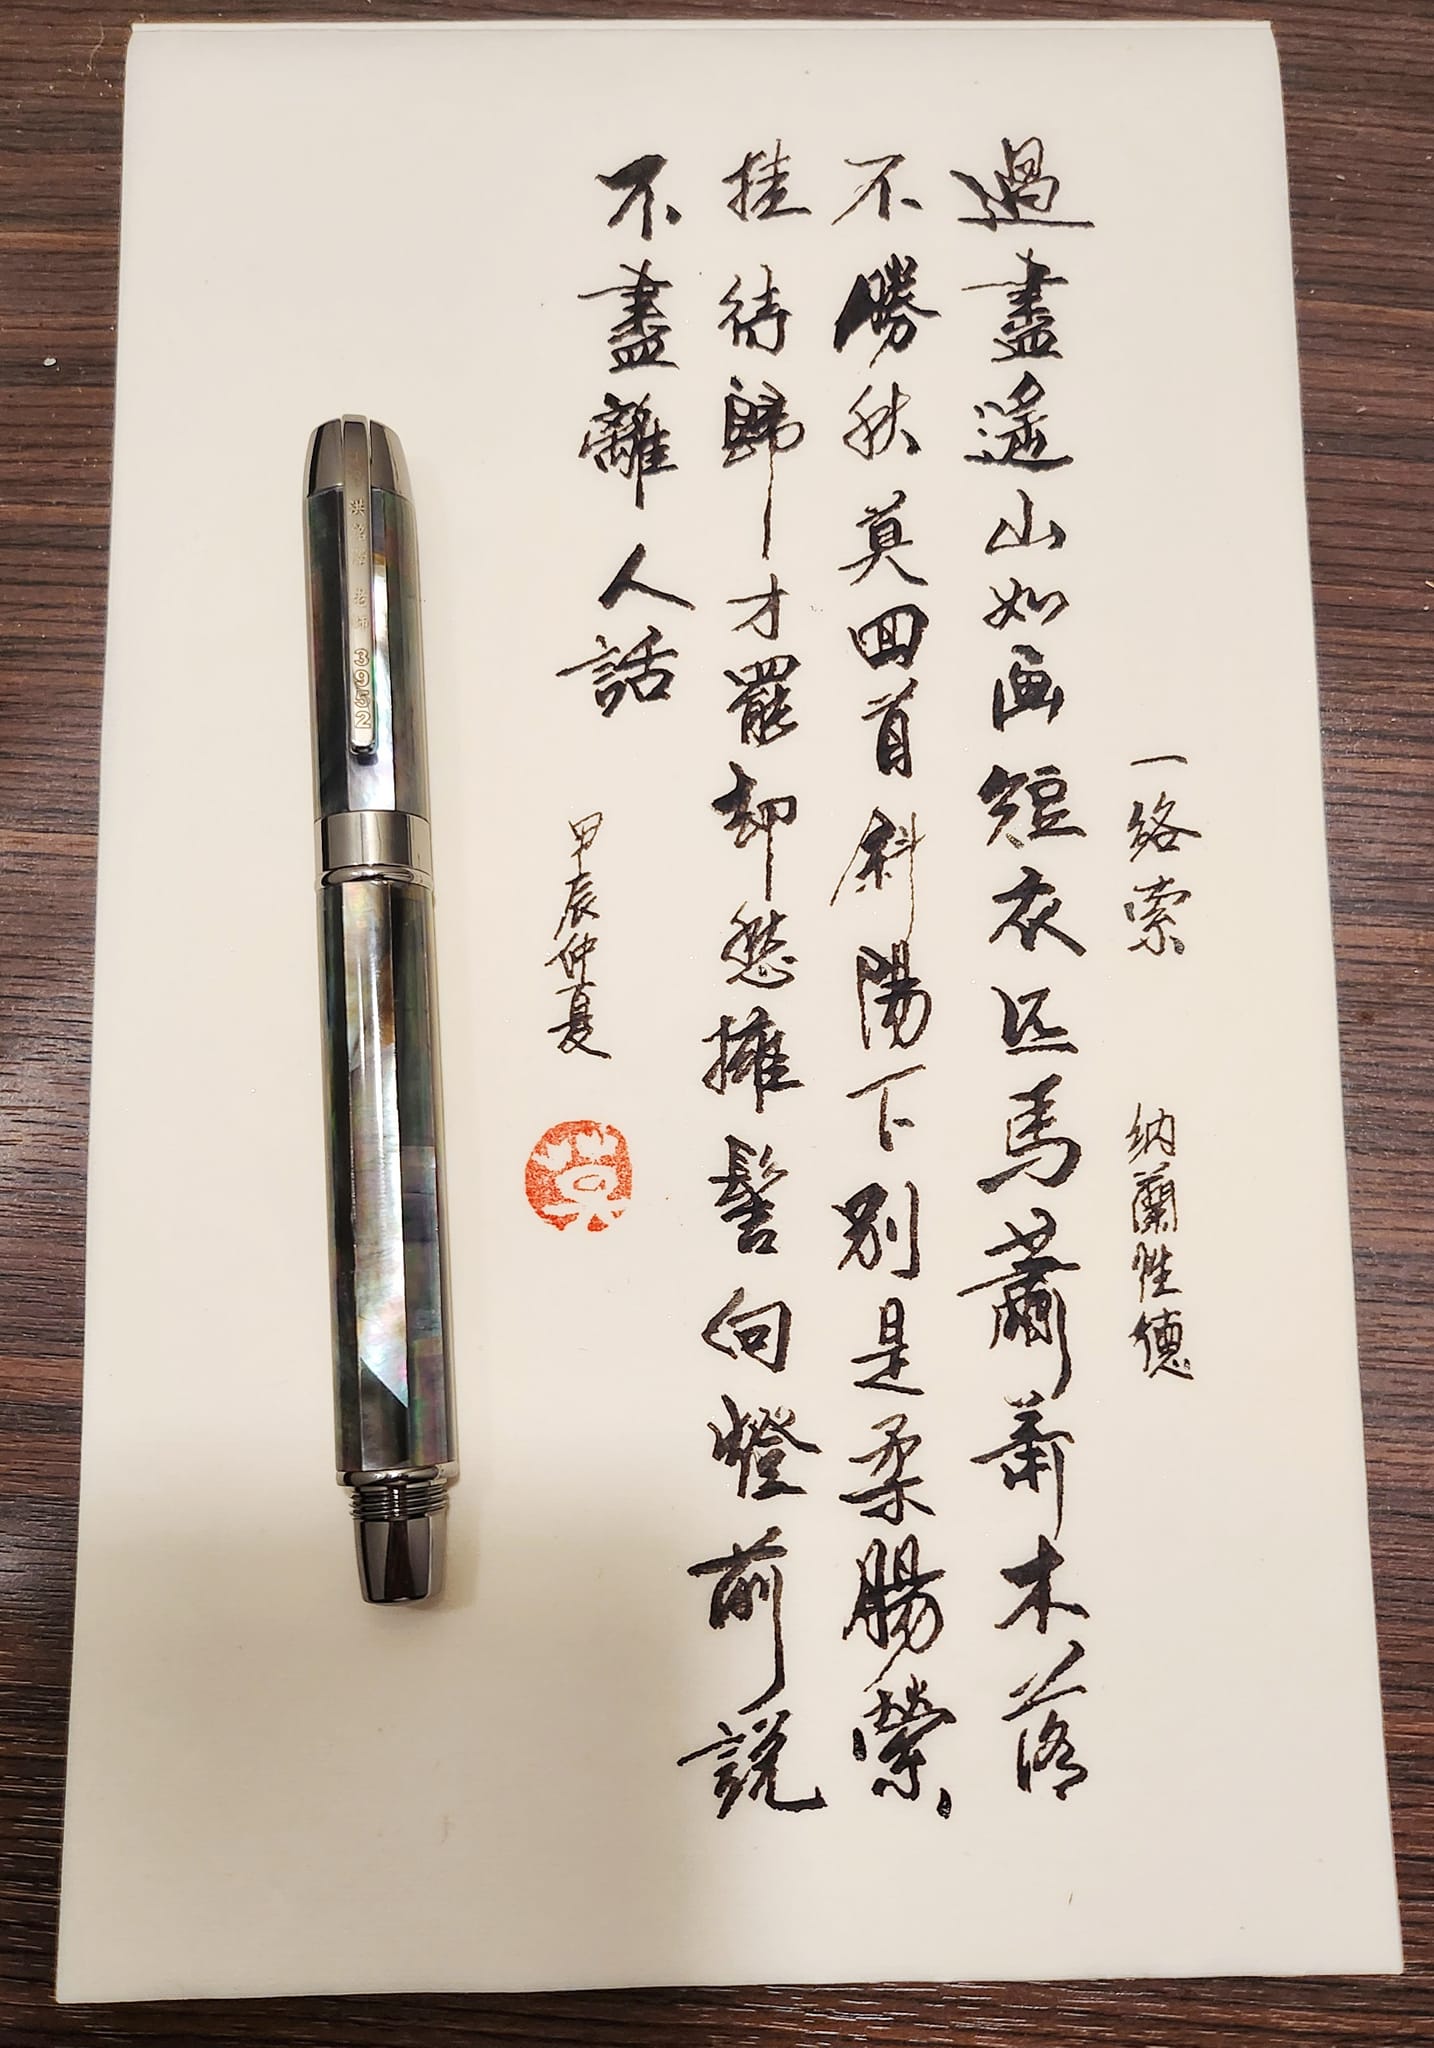 一絡索 納蘭性德
過盡遙山如画短衣匹馬蕭蕭木落
不勝秋莫囬首斜陽下別是柔腸縈
挂待歸才罷却愁擁髻向燈前說
不盡離人話
甲辰仲夏
老師 3952